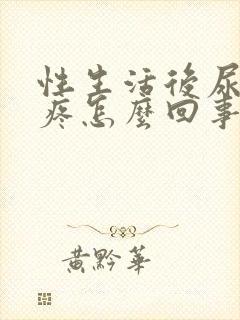 性生活後尿
疼怎麼回事
黃黔華